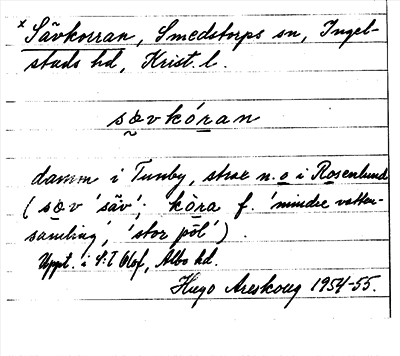 x Sävkorran, Smedstorps sn, Ingel-
stads hd, Krist. l.
søvkóran
damm i Tunby, strax n.o i Rosenlund
(søv 'säv'; kòra f. 'mindre vatten-
samling', 'stor pöl').
Uppt. i S:t Olof, Albo hd.
Hugo Areskoug 1954-55.